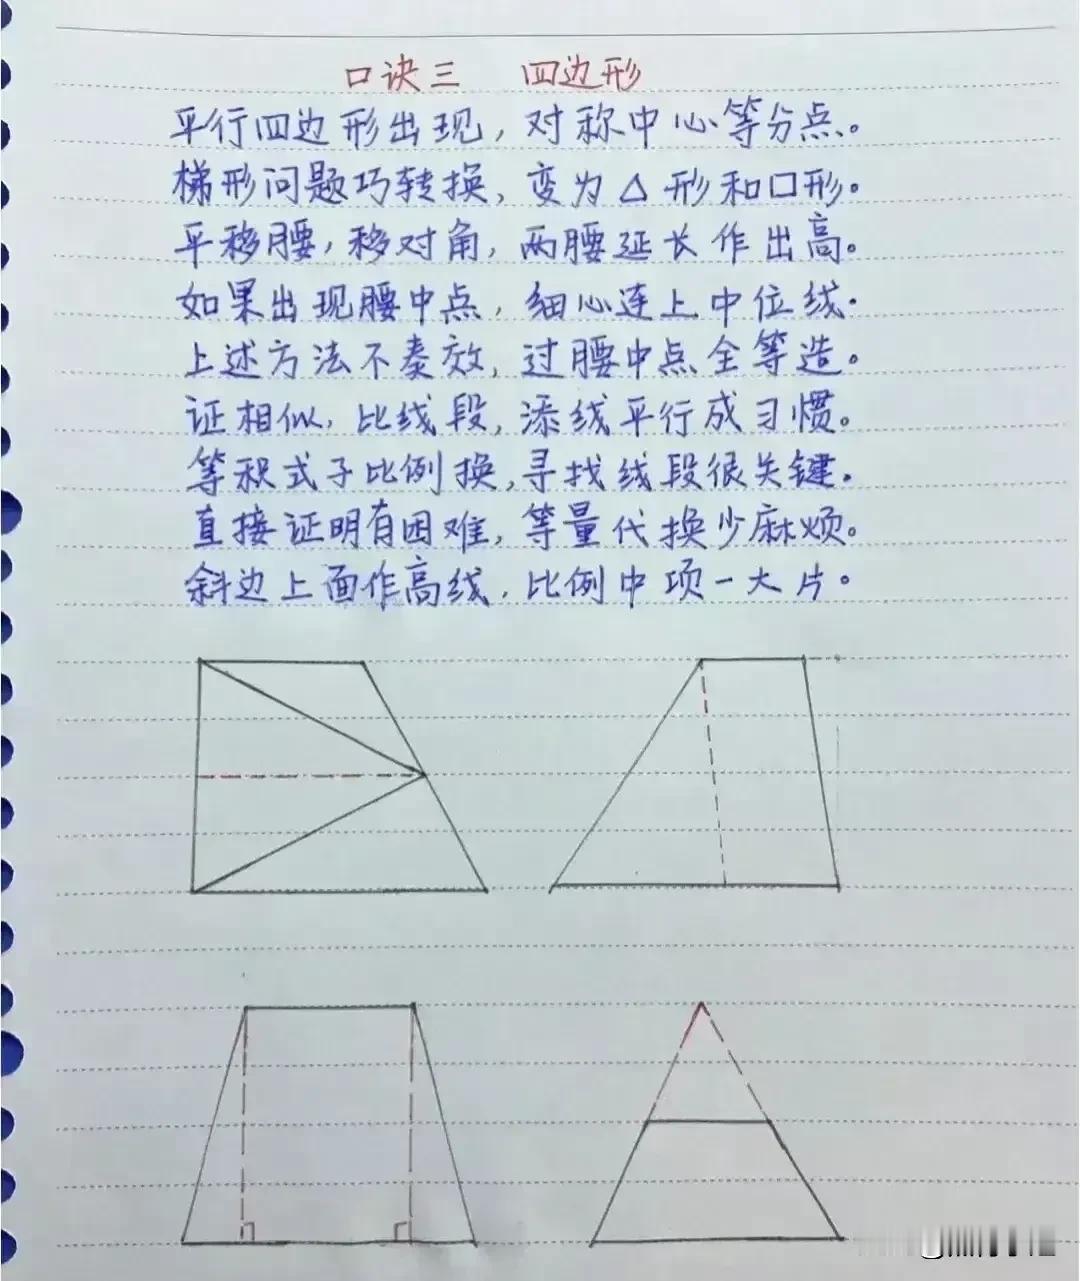 口诀三 四边形
平行四边形出现，对称中心等分点。
梯形问题巧转换，变为△形和口形。
平移腰，移对角，两腰延长作出高。
如果出现腰中点，细心连上中位线.
上述方法不奏效，过腰中点全等造。
证相似，比线段，添线平行成习惯。
等积式子比例换，寻找线段很关键。
直接证明有困难，等量代换少麻烦。
斜边上面作高线，比例中项一大片。